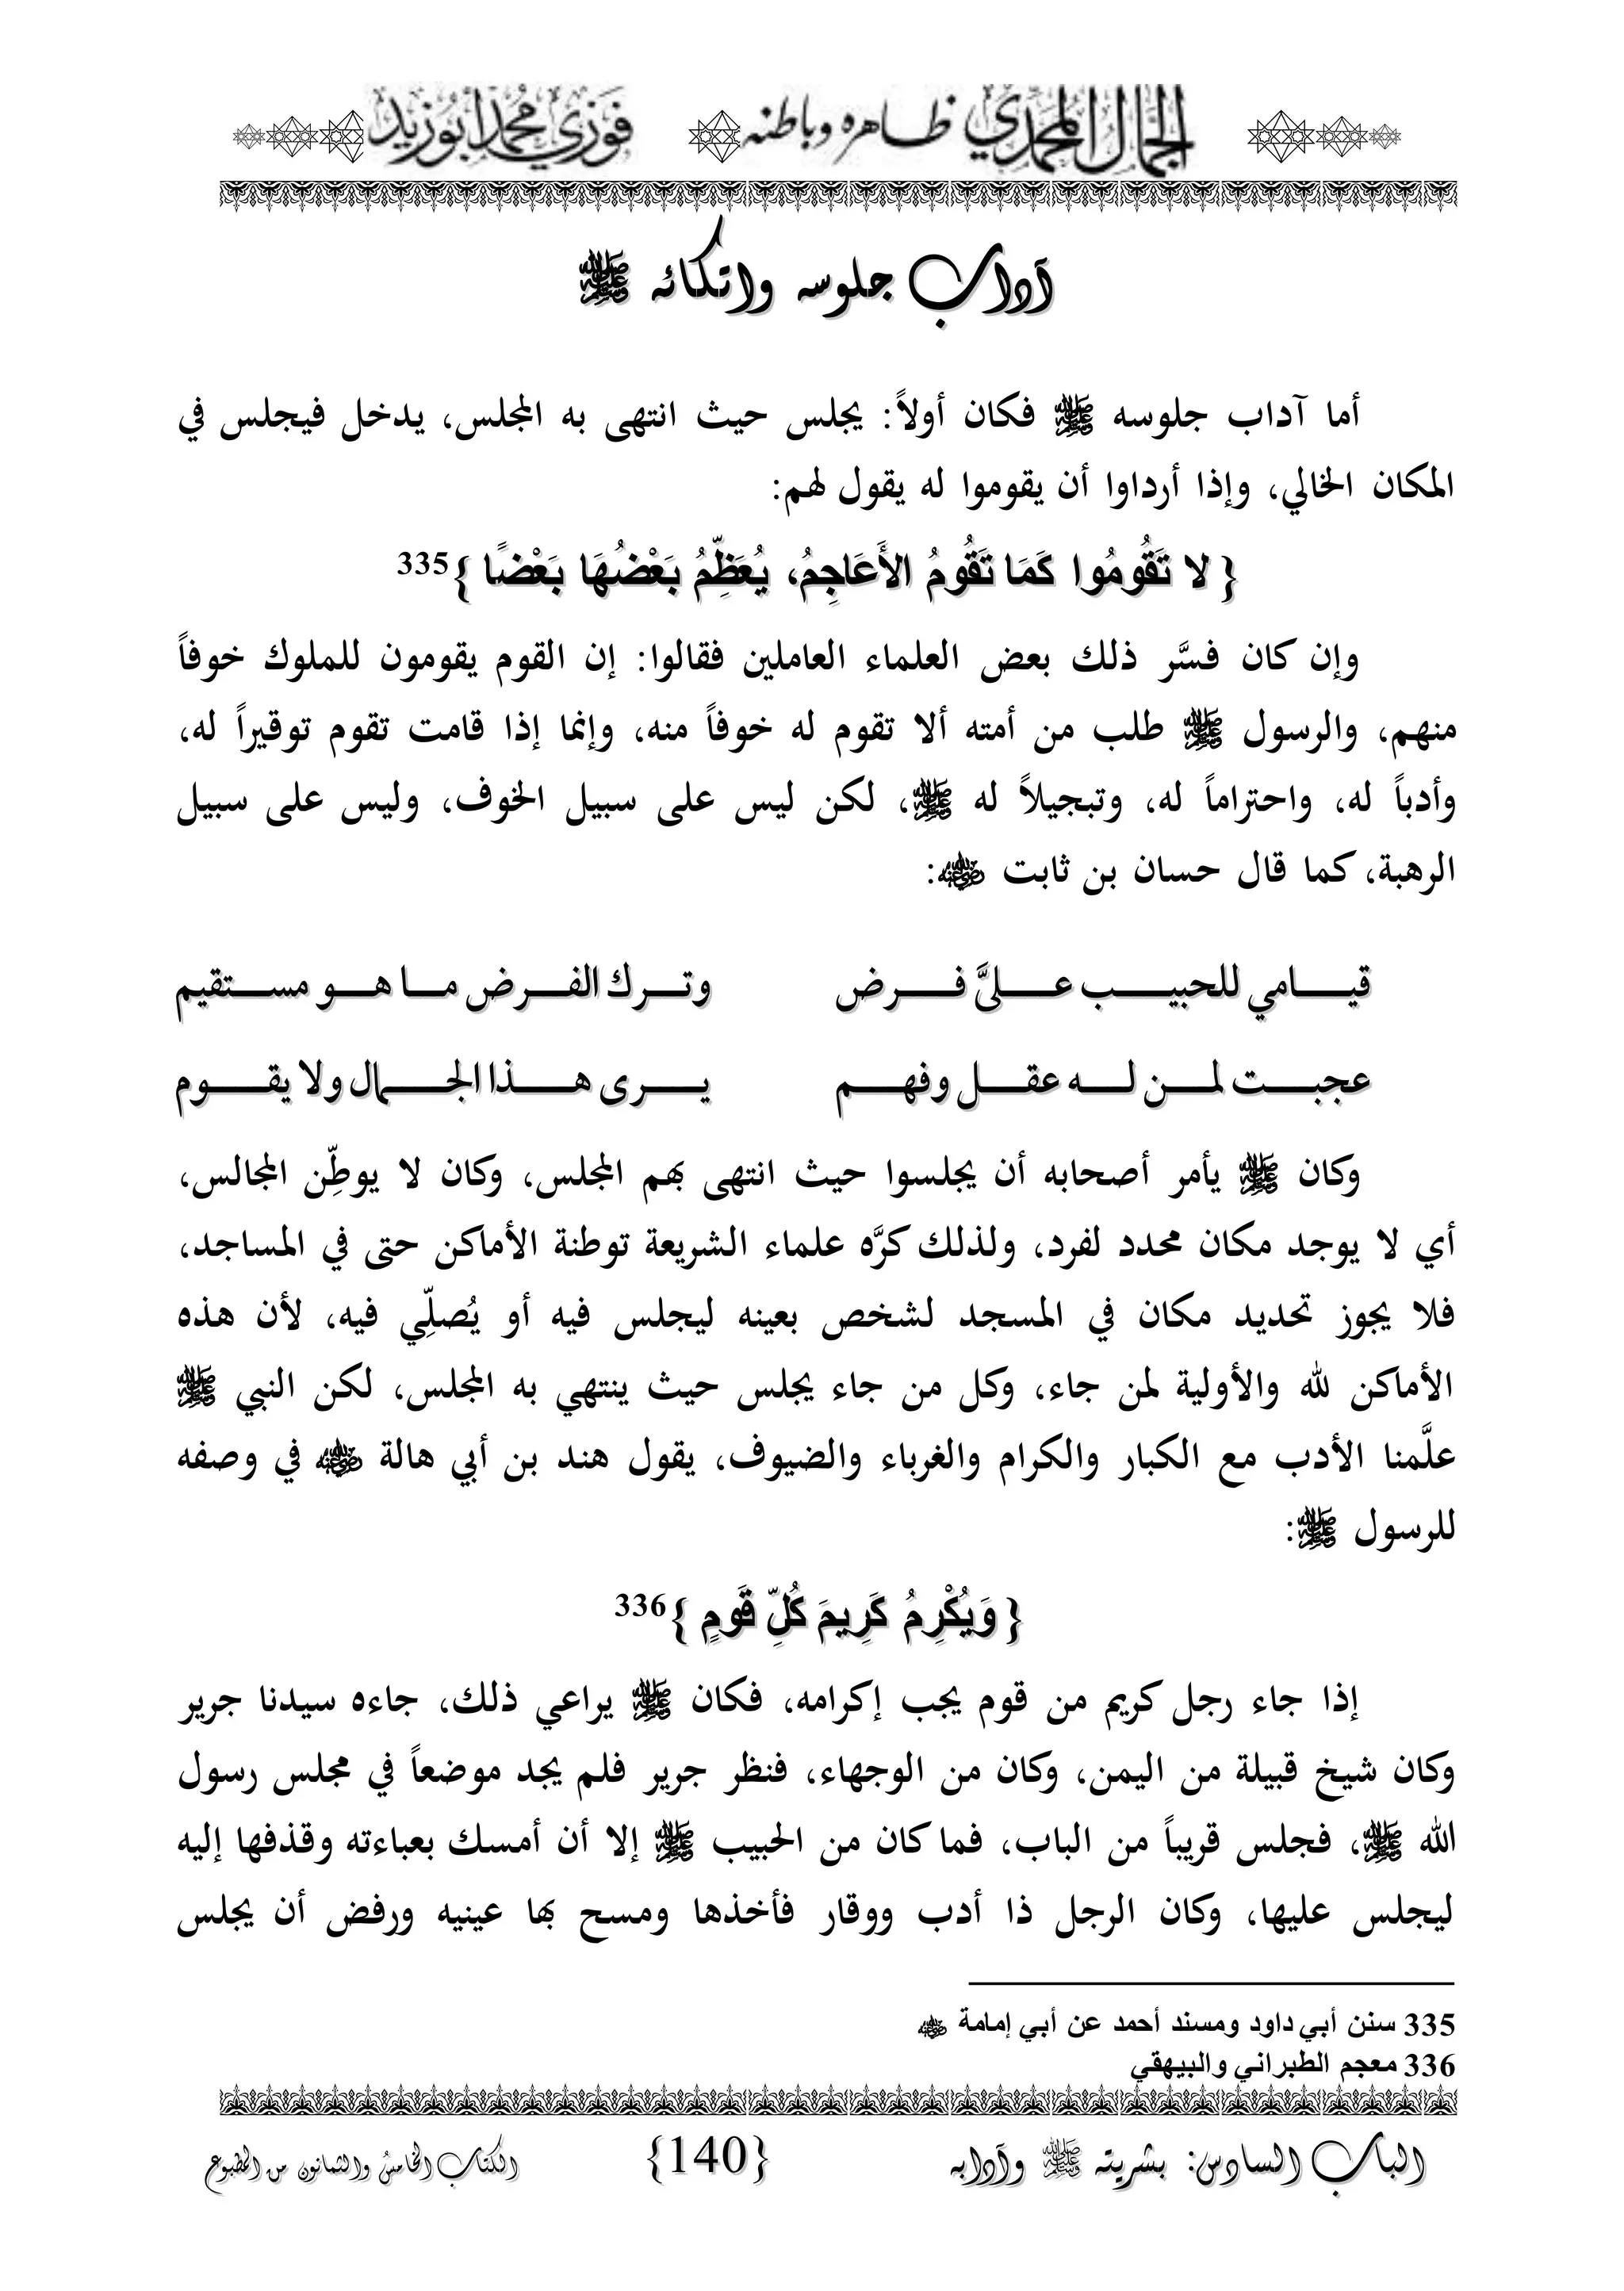 الجمال المحمدي ظاهره وباطنه فوزي محمد أبوزيد
آداب جلوسه واتكائه ﷺ
أما آداب جلوسه ﷺ فكان أولاً: يجلس حيث انتهى به المجلس، يدخل فيجلس في
المكان الخالي، وإذا أرداوا أن يقوموا له يقول لهم:
{ لا تَقُومُوا كَمَا تَقُومُ الأَعَاجِمُ، يُعَظِّمُ بَعْضُهَا بَعْضًا }335
وإن كان فسَّر ذلك بعض العلماء العاملين فقالوا: إن القوم يقومون للملوك خوفاً
منهم، والرسول ﷺ طلب من أمته ألا تقوم له خوفاً منه، وإنما إذا قامت تقوم توقيراً له،
وأدباً له، واحتراماً له، وتبجيلاً له ﷺ، لكن ليس على سبيل الخوف، وليس على سبيل
الرهبة، كما قال حسان بن ثابت ؓ:
قيامي للحبيب علىَّ فرض وترك الفرض ما هو مستقيم
عجبت لمن له عقل وفهم يرى هذا الجمال ولا يقوم
وكان ﷺ يأمر أصحابه أن يجلسوا حيث انتهى بهم المجلس، وكان لا يوطِّن المجالس،
أي لا يوجد مكان محدد لفرد، ولذلك كرَّه علماء الشريعة توطنة الأماكن حتى في المساجد،
فلا يجوز تحديد مكان في المسجد لشخص بعينه ليجلس فيه أو يُصلِّي فيه، لأن هذه
الأماكن لله والأولية لمن جاء، وكل من جاء يجلس حيث ينتهي به المجلس، لكن النبي ﷺ
علَّمنا الأدب مع الكبار والكرام والغرباء والضيوف، يقول هند بن أبي هالة ؓ في وصفه
للرسول ﷺ:
{ وَيُكْرِمُ كَرِيمَ كُلِّ قَومٍ }336
إذا جاء رجل كريم من قوم يجب إكرامه، فكان ﷺ يراعي ذلك، جاءه سيدنا جرير
وكان شيخ قبيلة من اليمن، وكان من الوجهاء، فنظر جرير فلم يجد موضعاً في مجلس رسول
الله ﷺ، فجلس قريباً من الباب، فما كان من الحبيب ﷺ إلا أن أمسك بعباءته وقذفها إليه
ليجلس عليها، وكان الرجل ذا أدب ووقار فأخذها ومسح بها عينيه ورفض أن يجلس
335 سنن أبي داود ومسند أحمد عن أبي إمامة ؓ
336 معجم الطبراني والبيهقي
الباب السادس: بشريته ﷺ وآدابه {140} الكتاب الخامس والثمانون من المطبوع